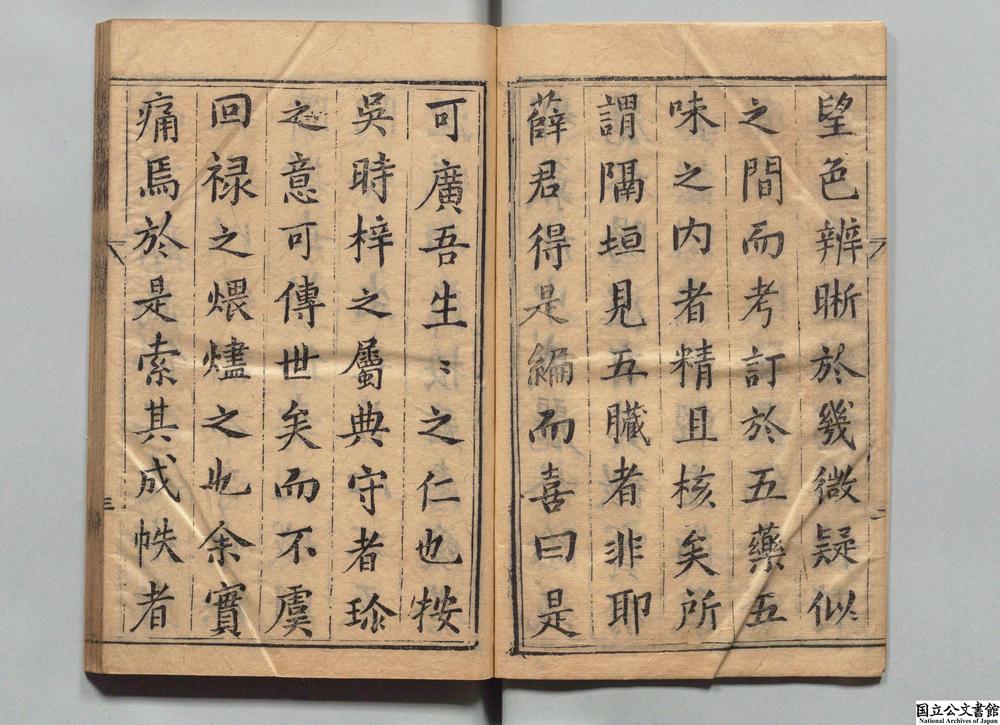 望色辨晰於幾微疑似
之間而考訂於五藥五
味之内者精且核矣所
謂隔垣見五臓者非耶
薛君得是編而喜曰是
可廣吾生〻之仁也按
吳時梓之屬典守者珎
之意可傳世矣而不虞
回禄之煨燼之也余實
痛焉於是索其成帙者
二
三
国立公文書館
National Archives of Japan